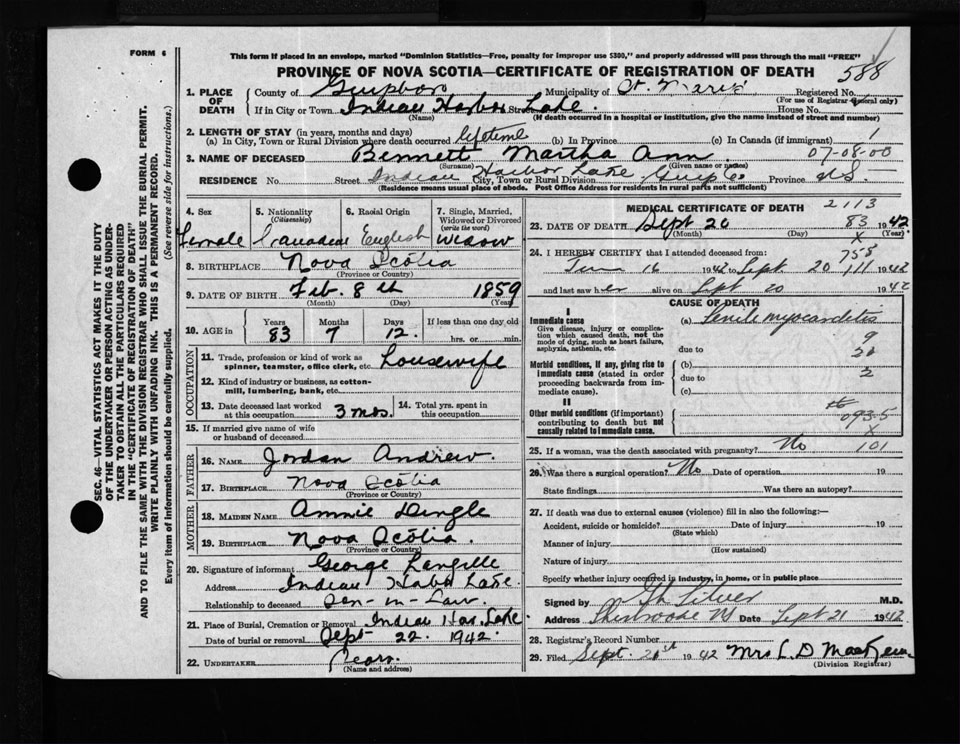 FORM 6
This form if placed in an envelope, marked "Dominion Statistics—Free, penalty for improper use $300," and properly addressed will pass through the mail "FREE"
PROVINCE OF NOVA SCOTIA—CERTIFICATE OF REGISTRATION OF DEATH 588
SEC. 46—VITAL STATISTICS ACT MAKES IT THE DUTY
OF THE UNDERTAKER OR PERSON ACTING AS UNDER-
TAKER TO OBTAIN ALL THE PARTICULARS REQUIRED
IN THE "CERTIFICATE OF REGISTRATION OF DEATH"
AND TO FILE THE SAME WITH THE DIVISION REGISTRAR WHO SHALL ISSUE THE BURIAL PERMIT.
WRITE PLAINLY WITH UNFADING INK. THIS IS A PERMANENT RECORD.
Every item of Information should be carefully supplied. (See reverse side for instructions.)
1. PLACE OF DEATH County of Guysboro Municipality of St. Mary's Registered No.
(For use of Registrar General only)
If in City or Town Indian Harbor Lake Street House No.
(Name) (If death occurred in a hospital or institution, give the name instead of street and number)
2. LENGTH OF STAY (in years, months and days)
(a) In City, Town or Rural Division where death occurred lifetime (b) In Province (c) In Canada (if immigrant) 1
3. NAME OF DECEASED Bennett Martha Ann 07-08-00
(Surname) (Given name or names)
RESIDENCE No. Street Indian Harbor Lake City, Town or Rural Division Guys Co Province N.S.
(Residence means usual place of abode. Post Office Address for residents in rural parts not sufficient)
4. Sex 5. Nationality (Citizenship) 6. Racial Origin 7. Single, Married, Widowed or Divorced (write the word)
Female Canadian English Widow
8. BIRTHPLACE Nova Scotia
(Province or Country)
9. DATE OF BIRTH Feb. 8th 1859
(Month) (Day) (Year)
10. AGE in Years Months Days If less than one day old
83 7 12 hrs. or min.
OCCUPATION
11. Trade, profession or kind of work as spinner, teamster, office clerk, etc. Housewife
12. Kind of industry or business, as cotton-mill, lumbering, bank, etc.
13. Date deceased last worked at this occupation 3 mos. 14. Total yrs. spent in this occupation.
15. If married give name of wife or husband of deceased
FATHER
16. NAME Jordan Andrew.
17. BIRTHPLACE Nova Scotia
(Province or Country)
MOTHER
18. MAIDEN NAME Annie Dingle
19. BIRTHPLACE Nova Scotia.
(Province or Country)
20. Signature of informant George Langille
Address Indian Lake.
Relationship to deceased Son-in-Law.
21. Place of Burial, Cremation or Removal Indian Har. Lake
Date of burial or removal Sept 22. 1942.
22. UNDERTAKER
(Name and address)
MEDICAL CERTIFICATE OF DEATH 2113
23. DATE OF DEATH Sept 20 83 1942
(Month) (Day) (Year)
X
24. I HEREBY CERTIFY that I attended deceased from: 753
June 16 1942 to Sept. 20 111 1942
and last saw her alive on Sept 20 1942
CAUSE OF DEATH
I
Immediate cause (a) Senile myocarditis
Give disease, injury or complication which caused death, not the mode of dying, such as heart failure, asphyxia, asthenia, etc.
9
due to 20
Morbid conditions, if any, giving rise to immediate cause (stated in order proceeding backwards from immediate cause).
(b)
due to 2
(c)
II
Other morbid conditions (if important) contributing to death but not causally related to immediate cause.
093.5
X
25. If a woman, was the death associated with pregnancy? No 101
26. Was there a surgical operation? No Date of operation 19
State findings Was there an autopsy?
27. If death was due to external causes (violence) fill in also the following:—
Accident, suicide or homicide? Date of injury 19
(State which)
Manner of injury
(How sustained)
Nature of injury
Specify whether injury occurred in Industry, in home, or in public place
Signed by Silver M.D.
Address Sherbrooke NS Date Sept 21 1942
28. Registrar's Record Number
29. Filed Sept. 1942 Mrs L. D. MacKeen
(Division Registrar)